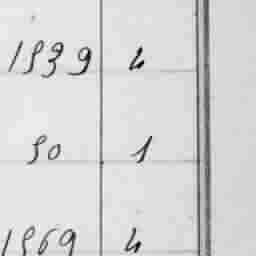 1839 4
80 1
1869 4